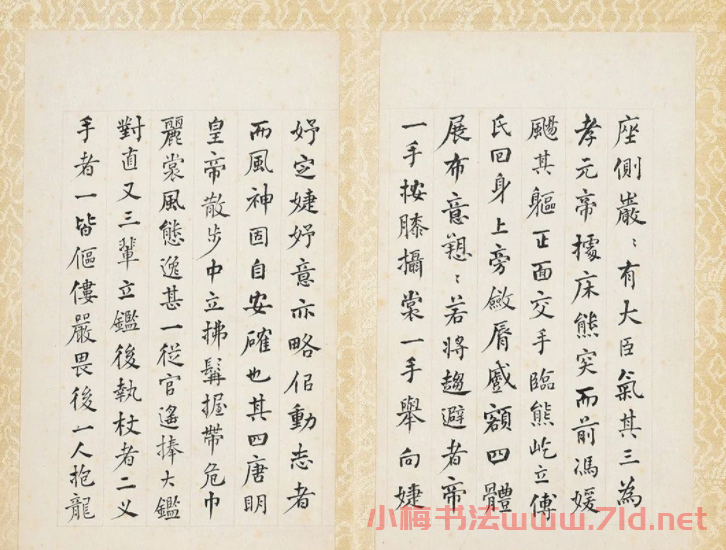 座側巖:有大臣氣其三為
孝元帝據床熊突而前馮媛
颺其軀正面交手臨熊屹立傅
氏回身上旁斂脣蹙額四體
展布意:若將趨避者帝
一手按膝攝裳一手舉向婕
妤定婕妤意亦略佀動志者
而風神固自安確也其四唐明
皇帝散步中立拂髯握帶危巾
麗裳風態逸甚一從官遙捧大鑑
對直又三輩立鑑後執杖者二乂
手者一皆傴僂嚴畏後一人抱龍
小梅书法www.7ld.net